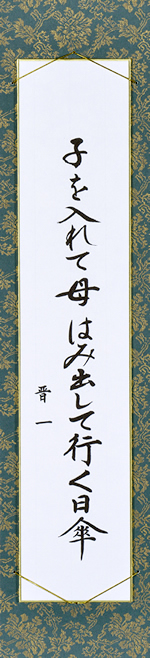 子を入れて母はみ出して行く日傘
晋一